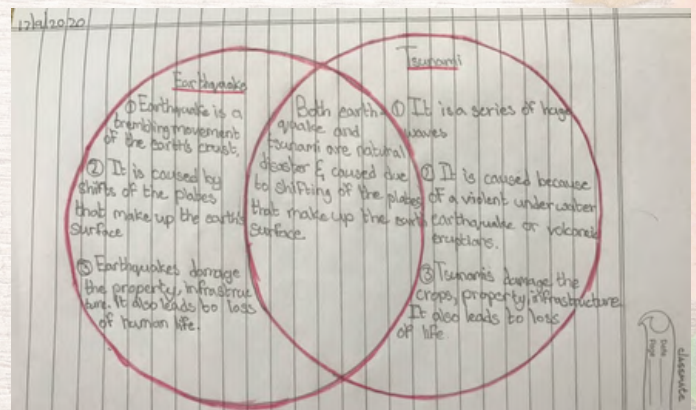 12/9/2020
Earthquake
① Earthquake is a
trembling movement
of the earth's crust.
② It is caused by
shifts of the plates
that make up the earth's
surface
③ Earthquakes damage
the property, infrastruc
ture. It also leads to loss
of human life.
Both earth-
quake and
tsunami are natural
disaster & caused due
to shifting of the plates
that make up the earth
surface
Tsunami
① It is a series of huge
waves
② It is caused because
of a violent underwater
earthquake or volcanic
eruptions.
③ Tsunamis damage the
crops, property, infrastructure.
It also leads to loss
of life.
classmate
Date
Page